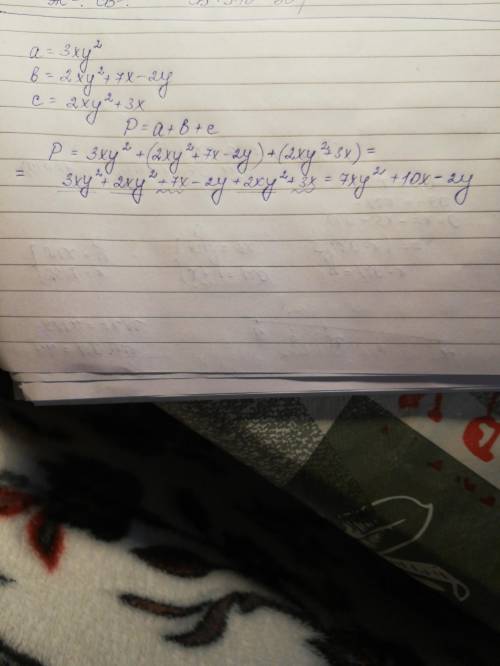 a = 3xy²
b = 2xy² + 7x - 2y
c = 2xy² + 3x
P = a + b + c
P = 3xy² + (2xy² + 7x - 2y) + (2xy² + 3x) =
= 3xy² + 2xy² + 7x - 2y + 2xy² + 3x = 7xy² + 10x - 2y